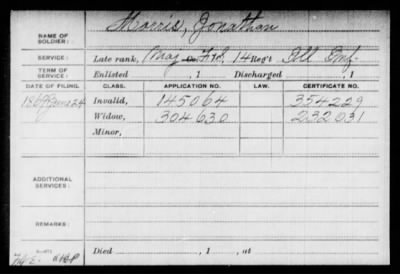 NAME OF SOLDIER: Morris, Jonathan
SERVICE: Late rank, Maj 14 Reg't Ill Inf.
TERM OF SERVICE: Enlisted , 1 Discharged , 1
DATE OF FILING. CLASS. APPLICATION NO. LAW. CERTIFICATE NO.
1869 June 24 Invalid, 145064 354229
Widow, 304630 232031
Minor,
ADDITIONAL SERVICES:
REMARKS:
Died , 1 , at